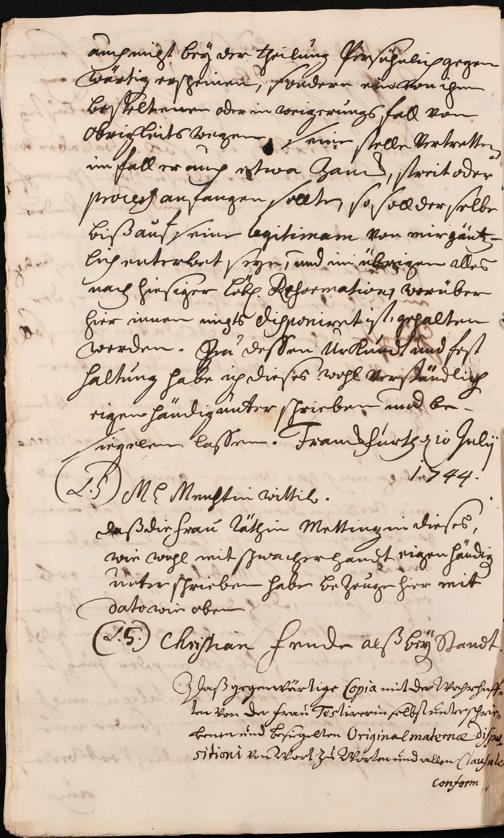 auch nicht bey der theilung Persöhnlich gegen
wärtig erscheinen, sondern ein von ihm
bestelter oder in weigerungs fall von
Obrigkeits wegen, seine stelle Vertretten
im fall er auch etwa Zanck, streit oder
process anfangen sollte, so soll der selbe
biß auf seine legitimam von mir gäntz-
lich enterbet seyn, und im übrigen alles
nach hiesiger löbl. Reformation, worüber
hier innen nichts disponiret ist, gehalten
werden. Zu dessen Urkundt und fest
haltung habe ich dieses wohl verständlich
eigenhändig unterschrieben und be-
siegelen lassen. Franckfurth 20 July
1744.
(L.S.) wittib.
daß die frau Räthin Metting in dieses,
wie wohl mit schwacher handt eigenhändig
unterschrieben habe bezeuge hier mit
dato wie oben
(L.S.) Christian fende alß beystandt
daß gegenwärtige Copia mit der Wahrhaff
ten von der frau Testirerin selbst unterschrie
benen und besiegelten Original maternæ dispo
sitioni von Wort zu Worten und allen Clausulen
conform